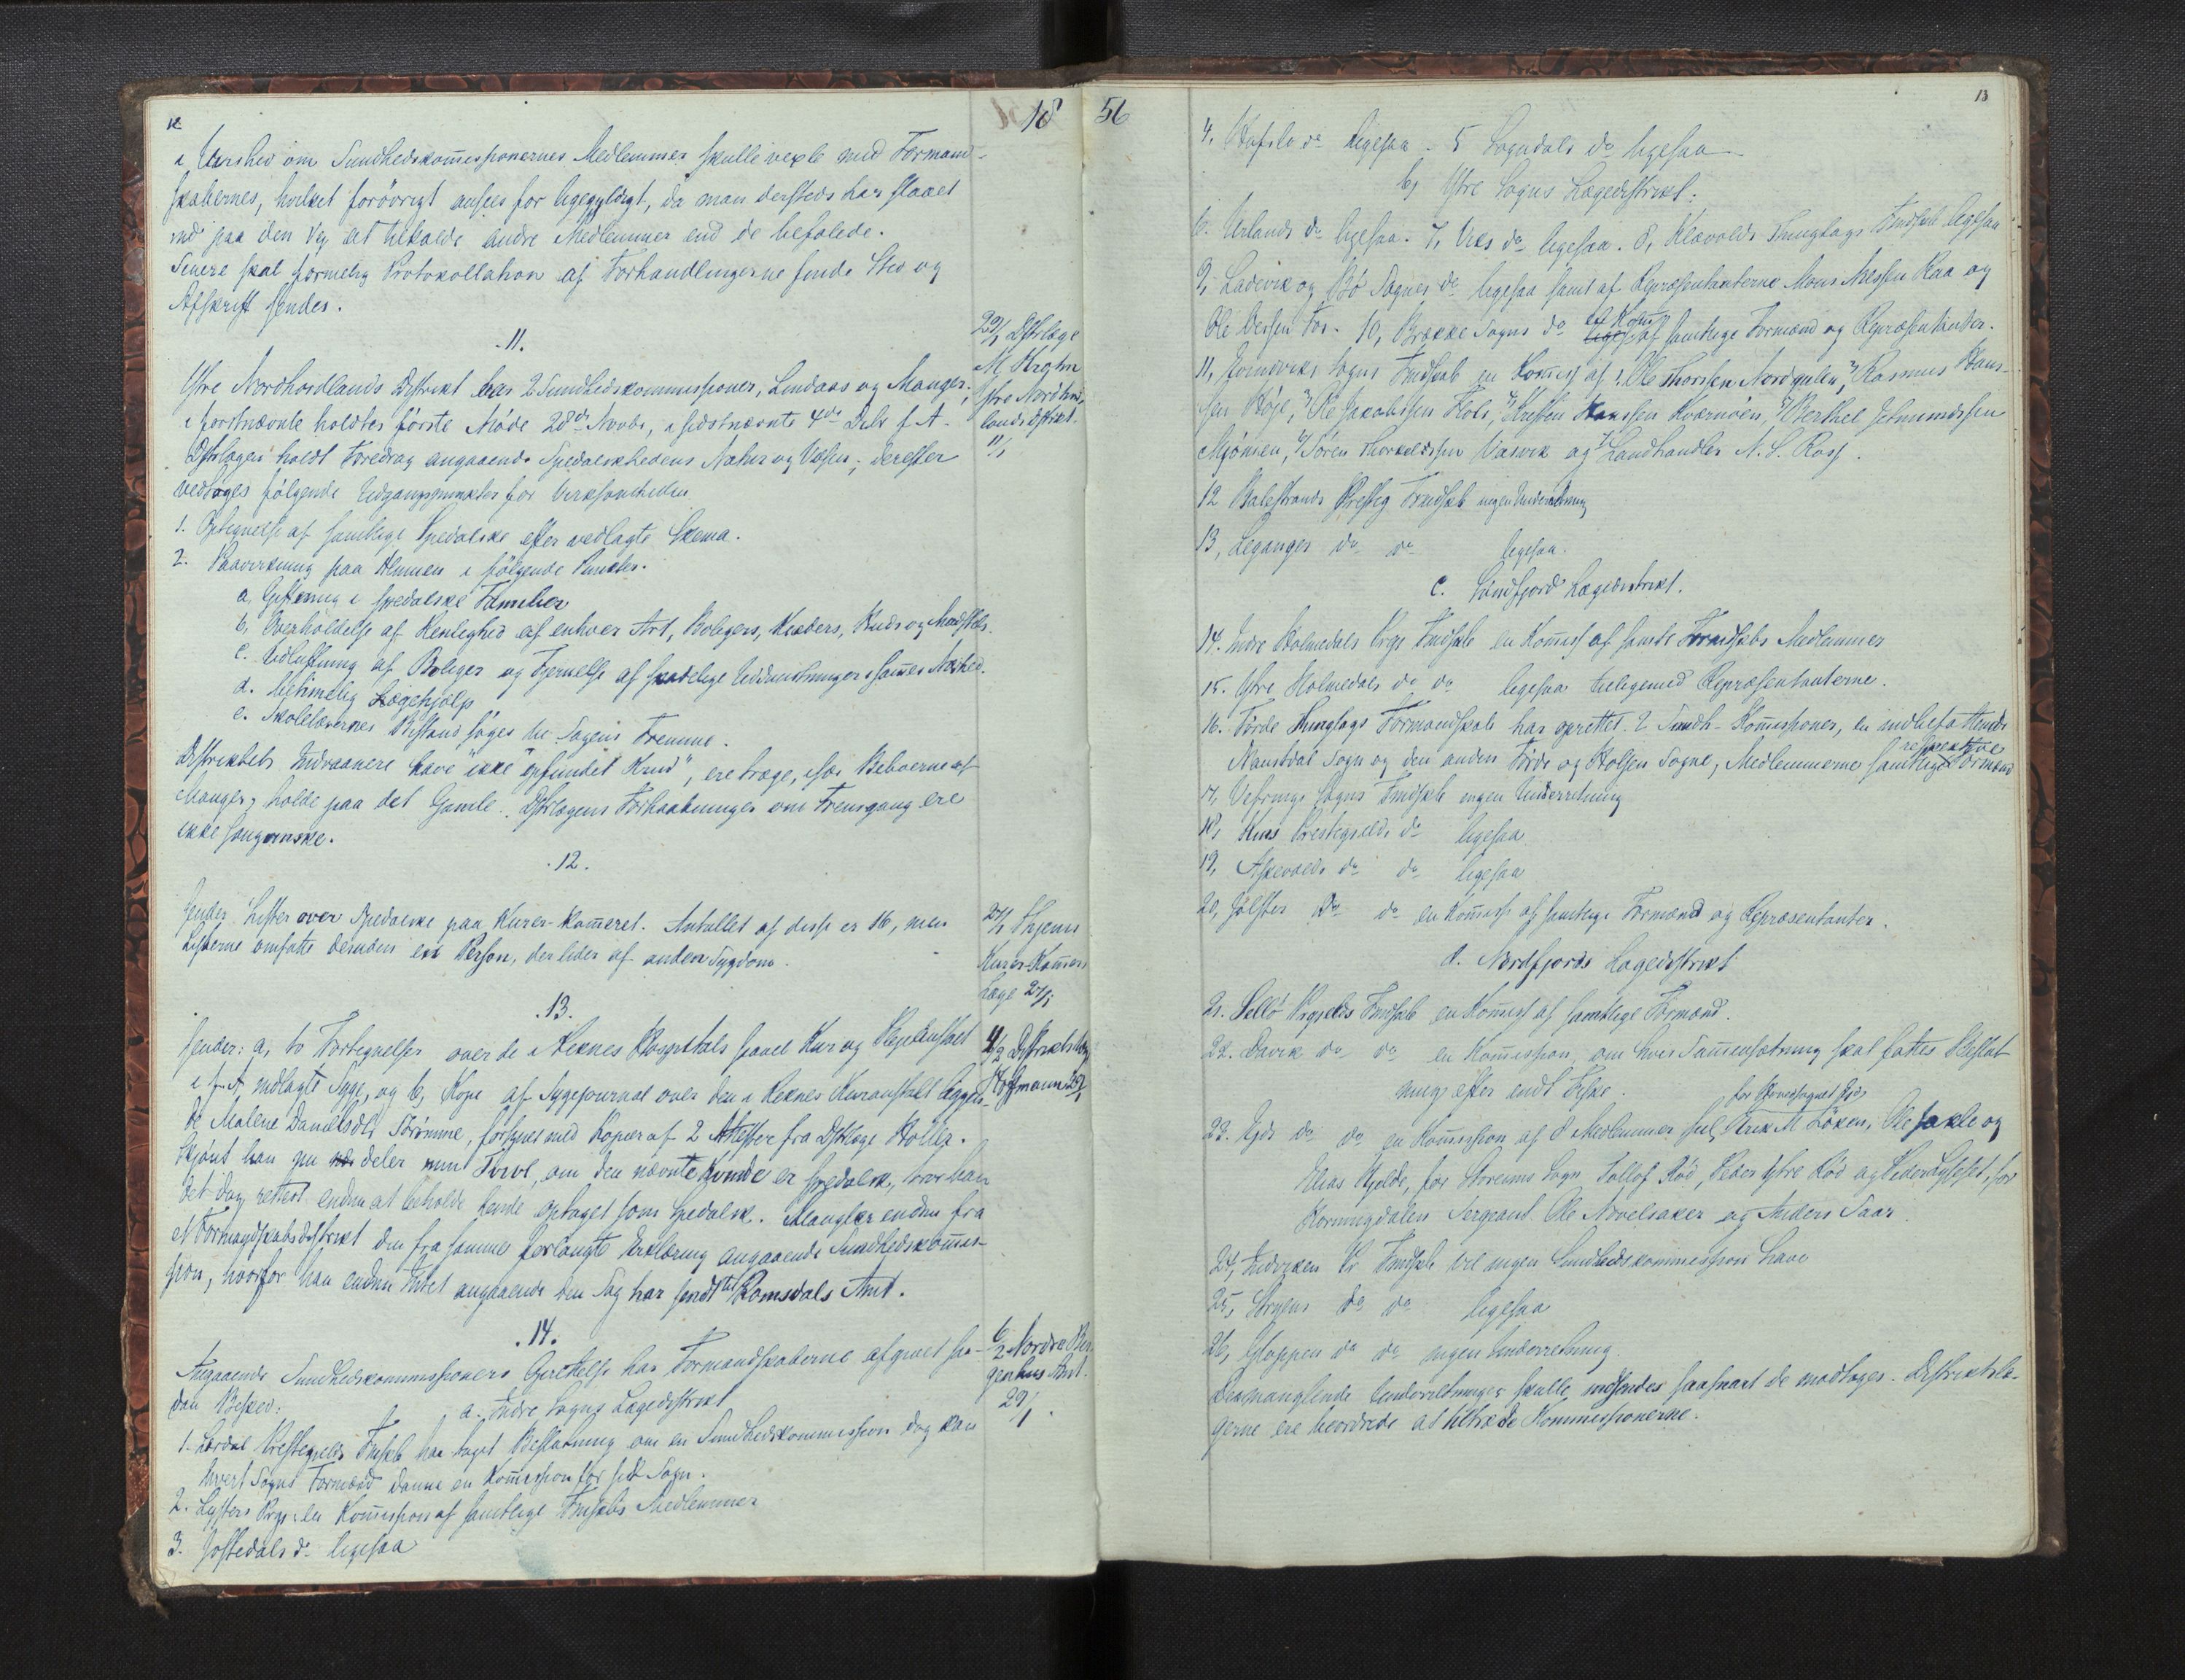 12
18
i Uvished om Sundhedskom̄issionernes Medlemmer skulle vexle med Formand-
skabernes, hvilket forövrigt ansees for ligegyldigt, da man dersteds har slaaet
ind paa den Vej at tilkalde andre Medlemmer end de befalede.
Senere skal formelig Protokollation af Forhandlingerne finde Sted og
Afskrift sendes.
.11.
29/1 Dstrlæge
M. Krohn
Ytre Nordhord-
lands Dstrikt.
11/1
Ytre Nordhordlands Dstrikt har 2 Sundhedskommissioner, Lindaas og Manger;
i förstnævnte holdtes förste Möde 28de Novbr, i sidstnævnte 4de Debr f. A.
Dstrlægen holdt Foredrag angaaende Spedalskhedens Natur og Væsen; derefter
vedtoges fölgende Udgangspunkter for Virksomheden
1. Optegnelse af samtlige Spedalske efter vedlagte Skema.
2. Paavirkning paa Almuen i fölgende Punkter.
a, Giftning i spedalske Familier
b, Overholdelse af Renlighed af enhver Art, Boligens, Klæders, Huds og Madstels.
c. Udluftning af Boliger og Fjernelse af skadelige Uddunstninger i sam̄es Nærhed.
d. betimelig Lægehjælp
e. Skolelærernes Bistand söges til Sagens Fremme.
Dstriktets Indvaanere have "ikke opfundet Krud", ere træge, især Beboerne af
Manger, holde paa det Gamle. Dstrlægens Forhaabninger om Fremgang ere
ikke sangvinske.
.12.
27/1 Skjems
Kurer-Kam̄ers
Læge 27/1
Sender Lister over Spedalske paa Kurer-Kam̄eret. Antallet af disse er 16, men
Listerne omfatte desuden en Person, der lider af anden Sygdom.
.13.
4/2 Distriktslæge
Hoffmann 29/1
Sender: a, to Fortegnelser over de i Reknes Hospitals saavel Kur og Plejeanstalt
i f. A. indlagte Syge, og b, Kopi af Sygejournal over den i Reknes Kuranstalt liggen-
de Malene Danielsdtr Sörömme, forsynet med Kopier af 2 Attester fra Dstrlæge Holler.
Skjönt han nu deler min Tvivl, om den nævnte Kvinde er spedalsk, tror han
det dog rettest endnu at beholde hende optaget som Spedalsk. Mangler endnu fra
et Formandskabsdistrikt den fra samme forlangte Erklæring angaaende Sundhedskom̄is-
sion, hvorfor han endnu intet angaaende den Sag har sendt til Romsdals Amt.
.14.
6/2 Nordre Ber-
genhus Amt.
29/1.
Angaaende Sundhedskommissioners Oprettelse har Formandskaberne afgivet saa-
dan Besked:
a. Indre Sogns Lægedistrikt
1. Lærdal Præstegjelds Fmskab har taget Beslutning om en Sundhedskommission dog kan
hvert Sogns Formænd danne en Kom̄ission for sit Sogn.
2. Lysters Prgj. en Kom̄ission af samtlige Fmskabs Medlemmer
3. Jostedals do ligesaa
56
13
4, Hafslo do ligesaa - 5 Sogndals do ligesaa
b, Ytre Sogns Lægedistrikt:
6. Urlands do ligesaa. 7, Viks do ligesaa. 8, Klævolds Thinglags Fmdskb ligesaa
9, Ladevik og Bö Sognes do ligesaa samt af Repræsentanterne Mons Nilssen Raa og
Ole Olessen Tor. 10, Brække Sogns do en Kom̄iss af samtlige Formænd og Repræsentanter.
11, Evindviks Sogns Fmdskab en Kom̄iss af: 1, Ole Thorsen Nordgulen, 2, Rasmus Hans-
sen Höje, 3, Ole Jakobssen Flols, 4, Kristen Hanssen Kværnöen, 5, Berthel Jetmundssen
Mjömen, 6, Sören Thorkeldssen Vasvik og 7, Landhandler N. S. Ross.
12 Balestrands Prestegj Fmdskb ingen Underretning
13, Leganger do do ligesaa.
c. Söndfjord Lægedistrikt.
14. Indre Holmedals Prgj Fmdskb en Kom̄iss af samtl Formdskbs Medlemmer
15. Ytre Holmedals do do ligesaa tilligemed Repræsentanterne.
16. Förde Thinglags Formandskab har oprettet 2 Sundh-Kom̄issioner, en indbefattende
Naustdal Sogn og den anden Förde og Holsen Sogne, Medlemmerne samtlige respektive Formænd
17, Vefrings Sogns Fmdskb ingen Underretning
18, Kins Præstegjælds do ligesaa
19, Askevolds do do ligesaa
20, Jölster do do en Kom̄iss af samtlige Formænd og Repræsentanter.
d. Nordfjords Lægedistrikt
21. Sellö Prgjelds Fmdskb en Kom̄iss af samtlige Formænd.
22. Davik do do en Kom̄ission, om hvis Sam̄ensætning skal fattes Beslut
ning efter endt Fiske.
23. Ejds do do en Kom̄ission af 8 Medlemmer sul, for Hovedsognet Ejds Erik M Löken, Ole Sakle og
Elias Hjelde, for Storeims Sogn Tollof Röd, Peder Ytre Röd og Peder Lyslet, for
Hornindalen Sergeant Ole Navelsaker og Anders Saar.
24, Indviken Pr Fmdskb vil ingen Sundhedskommission have
25, Stryens do do ligesaa
26, Gloppen do do ingen Underretning.
De manglende Underretninger skulle indsendes saasnart de modtages. Distriktslæ-
gerne ere beordrede at tiltræde Kommissionerne.